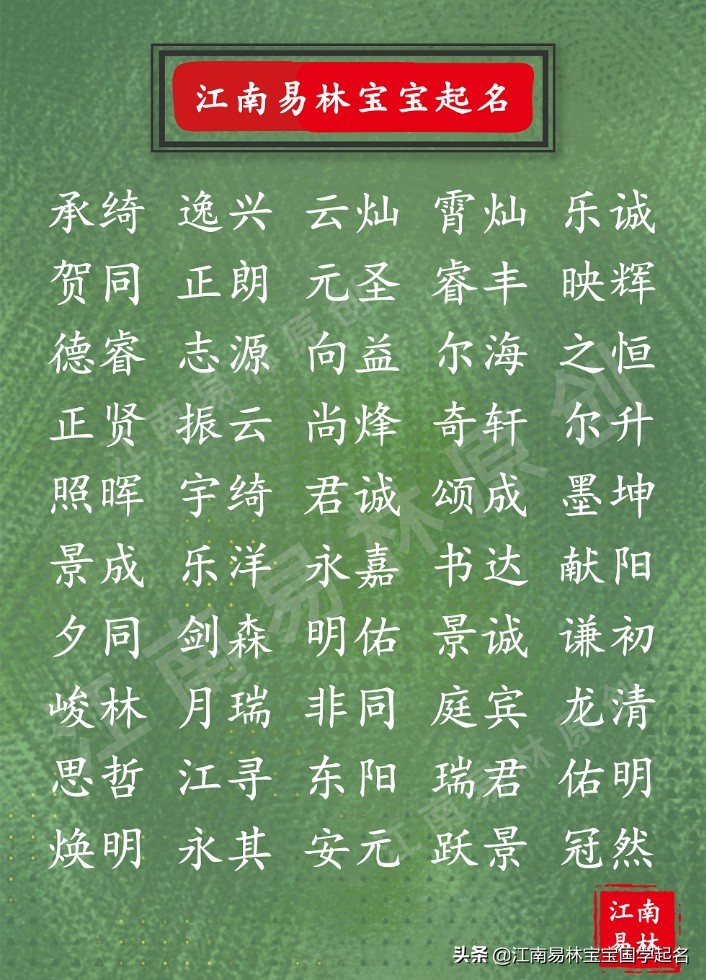 江南易林宝宝起名
承绮 逸兴 云灿 霄灿 乐诚
贺同 正朗 元圣 睿丰 映辉
德睿 志源 向益 尔海 之恒
正贤 振云 尚烽 奇轩 尔升
照晖 宇绮 君诚 颂成 墨坤
景成 乐洋 永嘉 书达 献阳
夕同 剑森 明佑 景诚 谦初
峻林 月瑞 非同 庭宾 龙清
思哲 江寻 东阳 瑞君 佑明
焕明 永其 安元 跃景 冠然
江南易林原创
江南易林原创
江南易林原创
江南
易林
头条 @江南易林宝宝国学起名